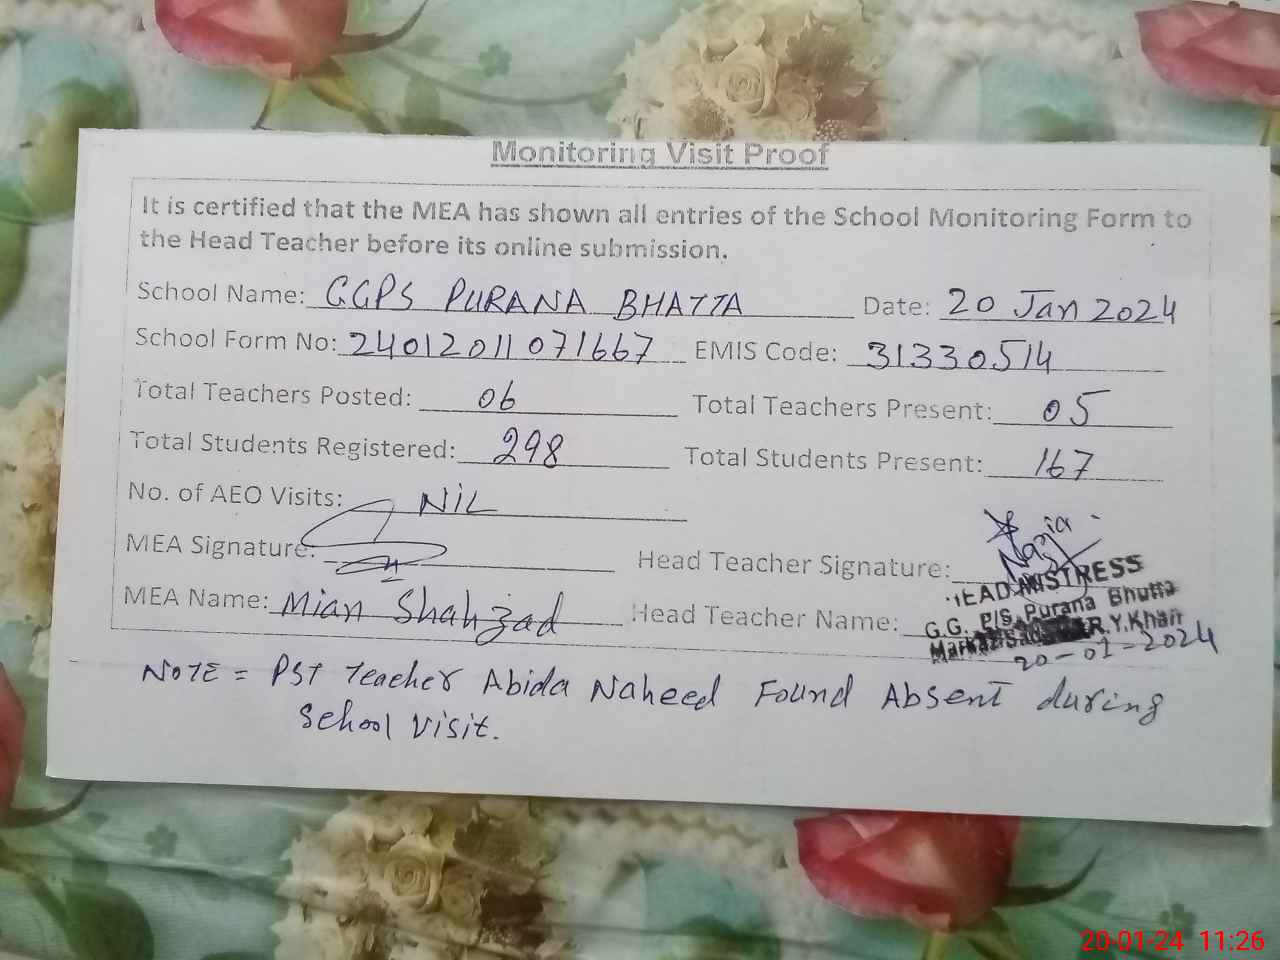 Monitoring Visit Proof
It is certified that the MEA has shown all entries of the School Monitoring Form to
the Head Teacher before its online submission.
School Name: GGPS PURANA BHATTA Date: 20 Jan 2024
School Form No: 24012011071667 EMIS Code: 31330514
Total Teachers Posted: 06 Total Teachers Present: 05
Total Students Registered: 298 Total Students Present: 167
No. of AEO Visits: NIL
MEA Signature: Head Teacher Signature: Nazia
HEAD MISTRESS
MEA Name: Mian Shahzad Head Teacher Name:
G.G. P/S. Purana Bhutta
Markaz R.Y.Khan
20-01-2024
NOTE = PST Teacher Abida Naheed Found Absent during
School Visit.
20-01-24 11:26